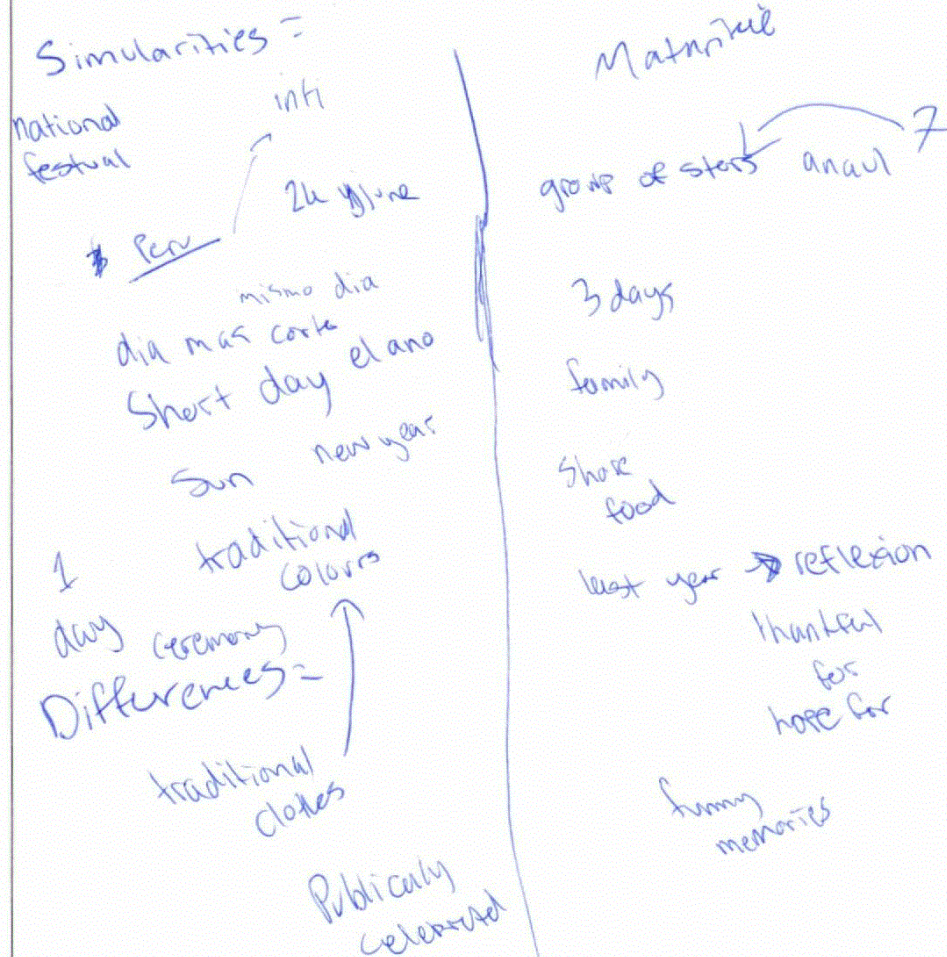 Simularities =
national
festual
inti
24 june
Peru
mismo dia
dia mas corto
el ano
Short day
Sun new year
traditional
colours
1
day ceremony
Differences =
traditional
clothes
Publically
celebrated
Matariki
7
group of stars
3 days
family
Share
food
last year → reflexion
thankful
for
hope for
funny
memories